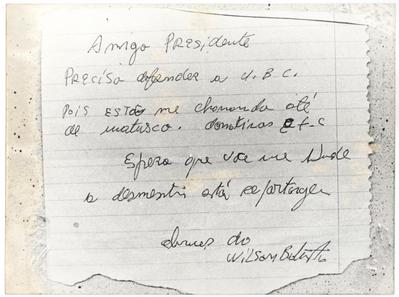 Amigo Presidente
Precisa defender a U.B.C.
Pois estão me chamando até
de donativos etc
Espero que voce me ajude
a desmentir está reportagem
do
Wilson Batista